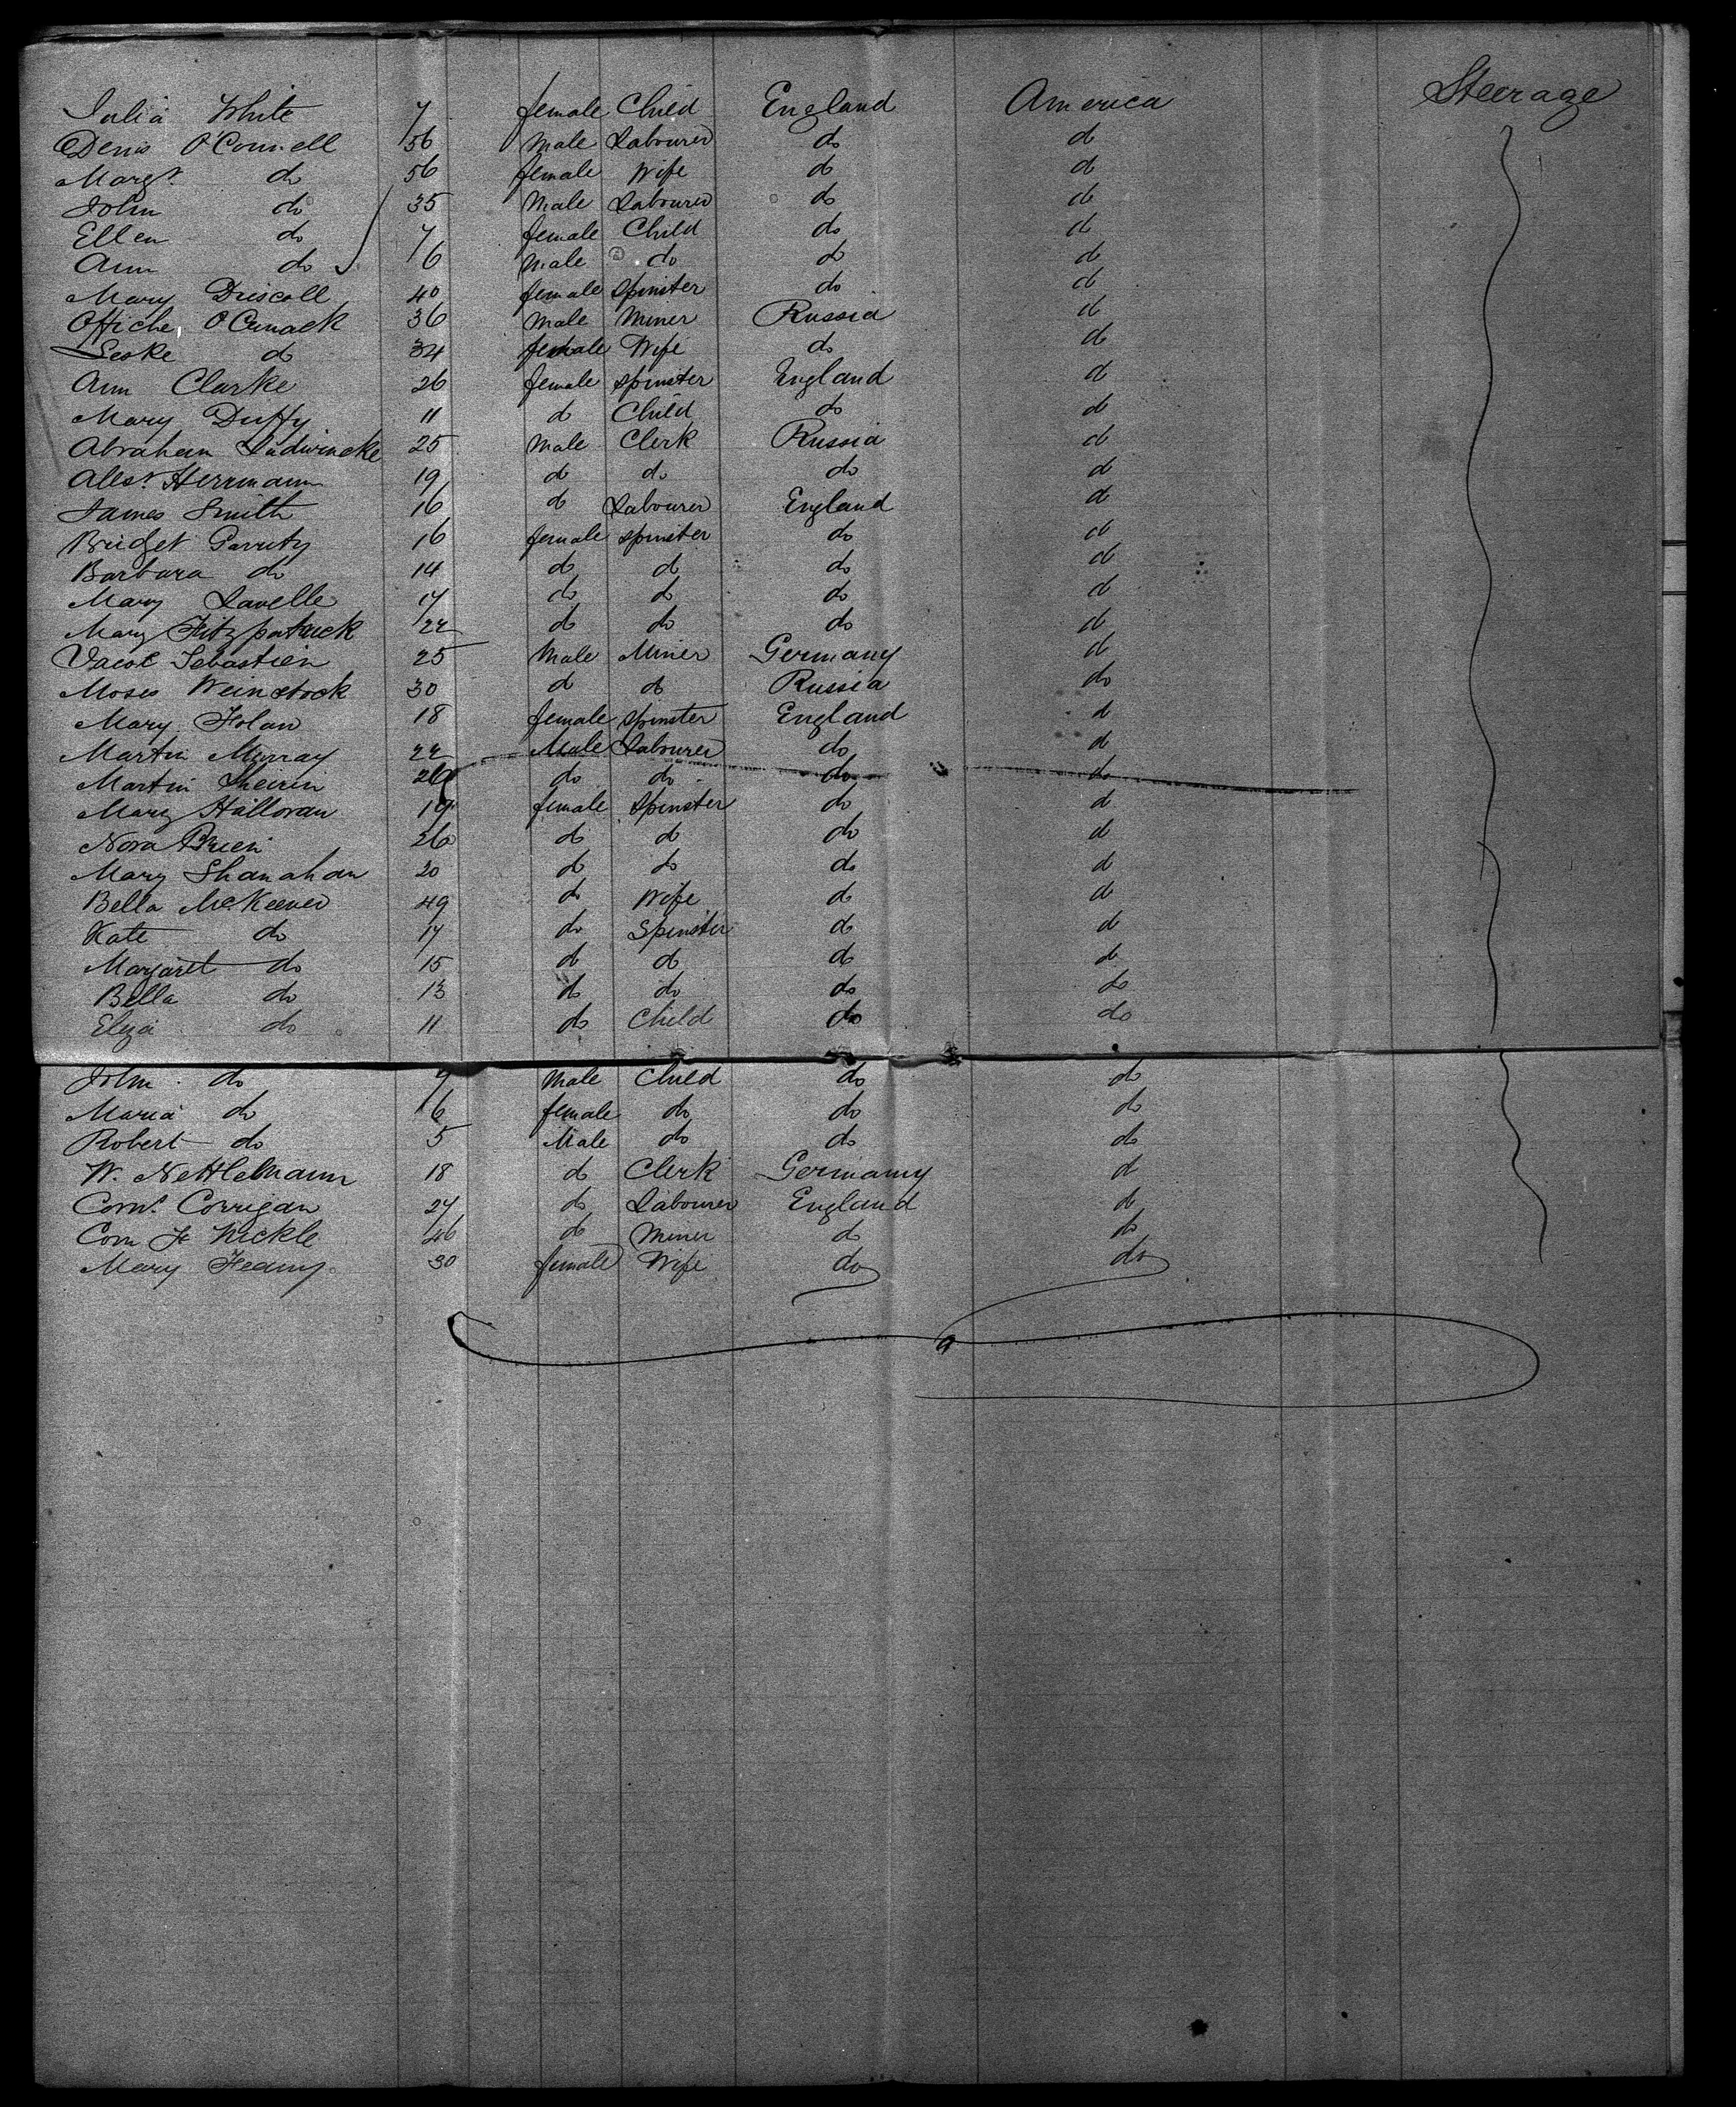 Julia White 7 female Child England America Steerage
Denis O'Connell 56 Male Labourer do do
Margt do 56 female Wife do do
John do 35 Male Labourer do do
Ellen do 7 female Child do do
Ann do 6 Male do do do
Mary Driscoll 40 female Spinster do do
36 Male Miner Russia do
Leske do 34 female Wife do do
Ann Clarke 26 female spinster England do
Mary Duffy 11 do Child do do
Abraham 25 Male Clerk Russia do
Alexr Herrmann 19 do do do do
James Smith 16 do Labourer England do
Bridget Garruty 16 female spinster do do
Barbara do 14 do do do do
Mary Lavelle 17 do do do do
Mary Fitzpatrick 22 do do do do
Jacob Sebastien 25 Male Miner Germany do
Moses Weinstock 30 do do Russia do
Mary Folan 18 female Spinster England do
Martin Murray 22 Male Labourer do do
Martin 26 do do do do
Mary Halloran 19 female Spinster do do
Nora Brien 26 do do do do
Mary Shanahan 20 do do do do
Bella McKeever 49 do Wife do do
Kate do 17 do Spinster do do
Margaret do 15 do do do do
Bella do 13 do do do do
Eliza do 11 do Child do do
John do 9 Male Child do do
Maria do 6 female do do do
Robert do 5 Male do do do
W. Nettlemann 18 do Clerk Germany do
Corns Corrigan 27 do Labourer England do
46 do Miner do do
Mary Feany 30 female Wife do do